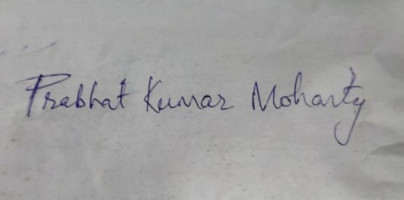 Prabhat Kumar Mohanty